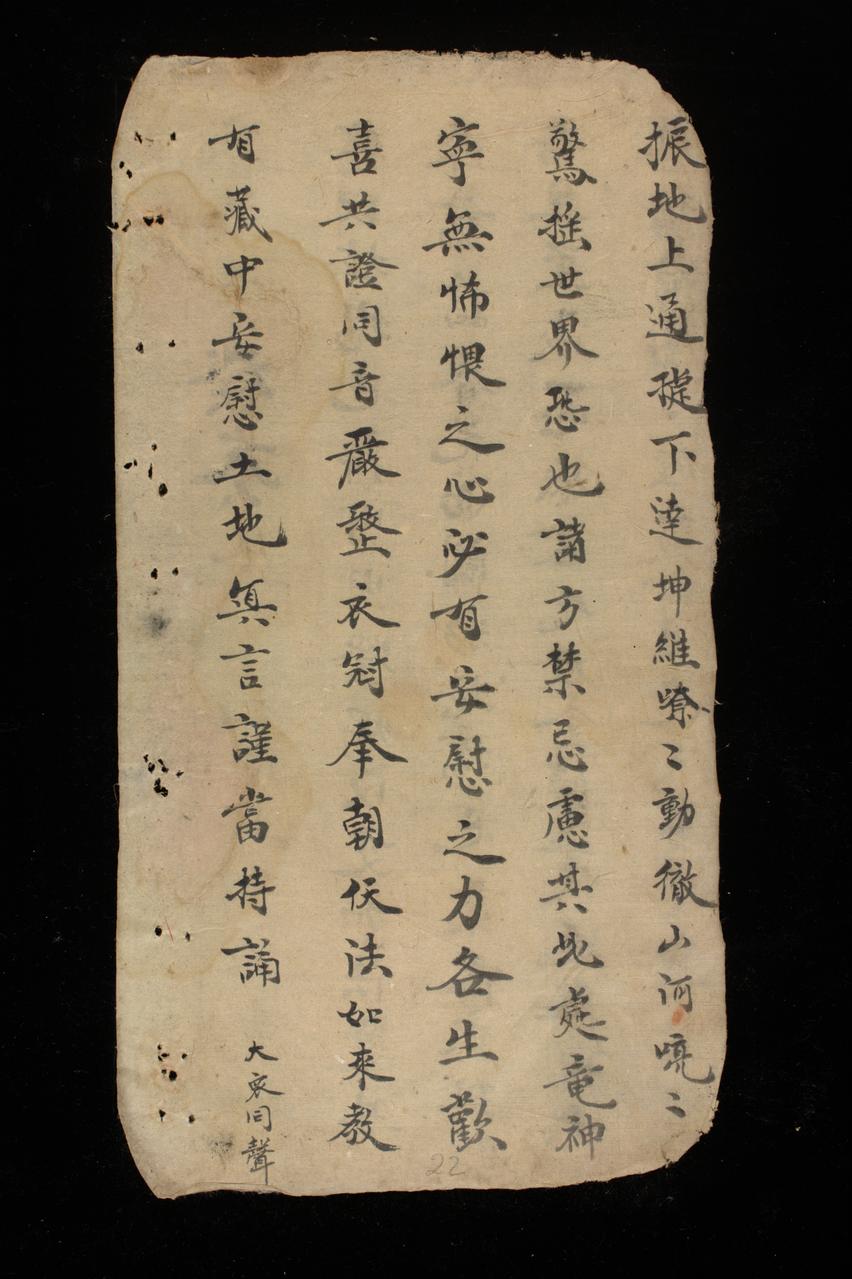 振地上通 下達坤維嘹〻動徹山河喨〻
驚摇世界恐也諸方禁忌慮其此處竜神
寧無怖惧之心必有妥慰之力各生歡
喜共證同音嚴整衣冠奉朝伏法如来教
有藏中妥慰土地真言謹當持誦 大衆同聲
22